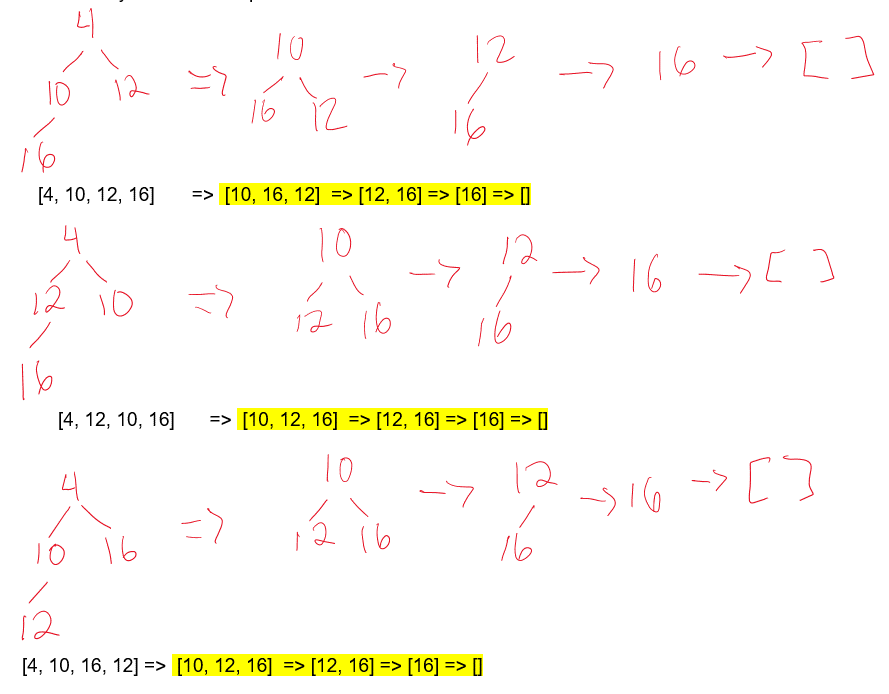 4 10 12 16 => 10 16 12 -> 12 16 -> 16 -> [ ]
[4, 10, 12, 16] => [10, 16, 12] => [12, 16] => [16] => []
4 12 10 16 => 10 12 16 -> 12 16 -> 16 -> [ ]
[4, 12, 10, 16] => [10, 12, 16] => [12, 16] => [16] => []
4 10 16 12 => 10 12 16 -> 12 16 -> 16 -> [ ]
[4, 10, 16, 12] => [10, 12, 16] => [12, 16] => [16] => []